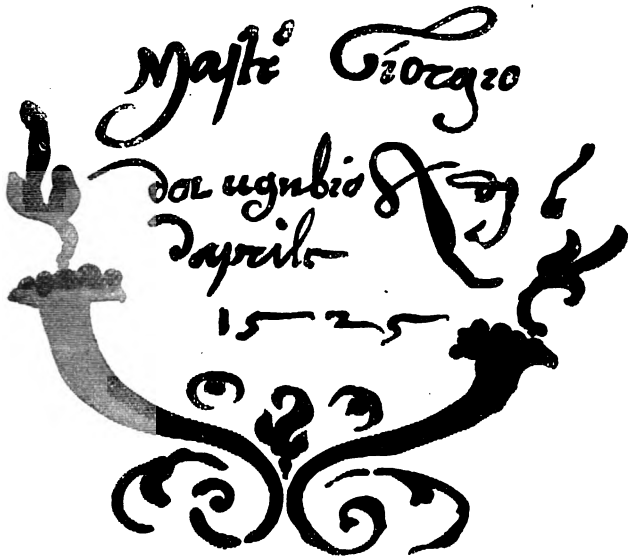 Mastr Giorgio
da ugubio 6
daprile
1525